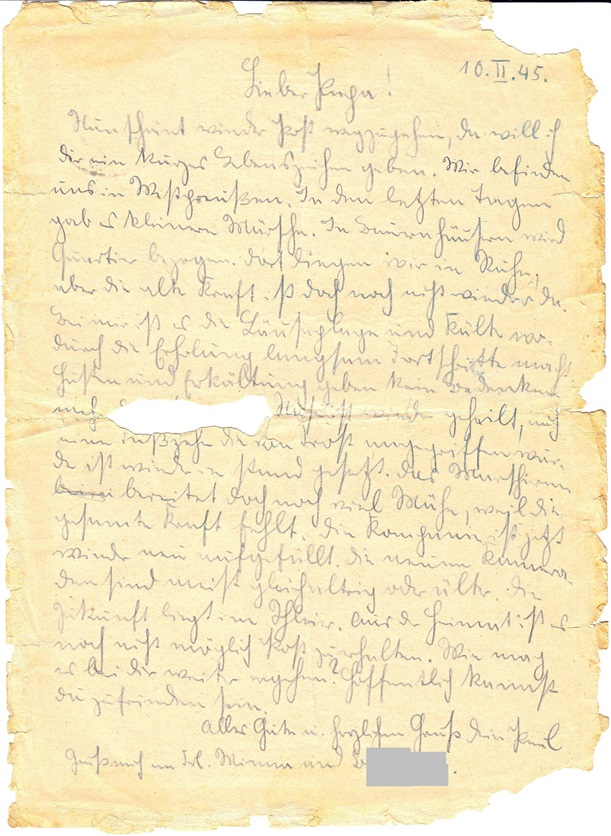 10.II.45.
Lieber Papa!
Nun scheint wieder Post wegzugehen, da will ich
dir ein kurzes Lebenszeichen geben. Wir befinden
uns in Westpreußen. In den letzten Tagen
gab es kleinere Märsche. In Bauernhäusern wird
Quartier bezogen. Dort liegen wir in Ruhe,
aber die alte Kraft ist doch noch nicht wieder da.
Bei mir ist es die Läuseplage und Kälte wo-
durch die Erholung langsam Fortschritte macht
Husten und Erkältung geben kein Bedenken
mehr ist wieder geheilt, auch
eine Fußzehe die von Frost angegriffen wur-
de ist wieder in stand gesetzt. Das Marschieren
bereitet doch noch viel Mühe, weil die
gesamte Kraft fehlt. Die Kompanie ist jetzt
wieder neu aufgefüllt. die neuen Kamera-
den sind meist gleichaltrig oder älter. Die
Zukunft liegt im Schleier. Aus der Heimat ist es
noch nicht möglich Post zu erhalten. Wie mag
es bei dir weiter ergehen? Hoffentlich kannst
du zufrieden sein.
Alles Gute u. herzlichen Gruß dein Paul
Grüß auch an Frl. Minna und